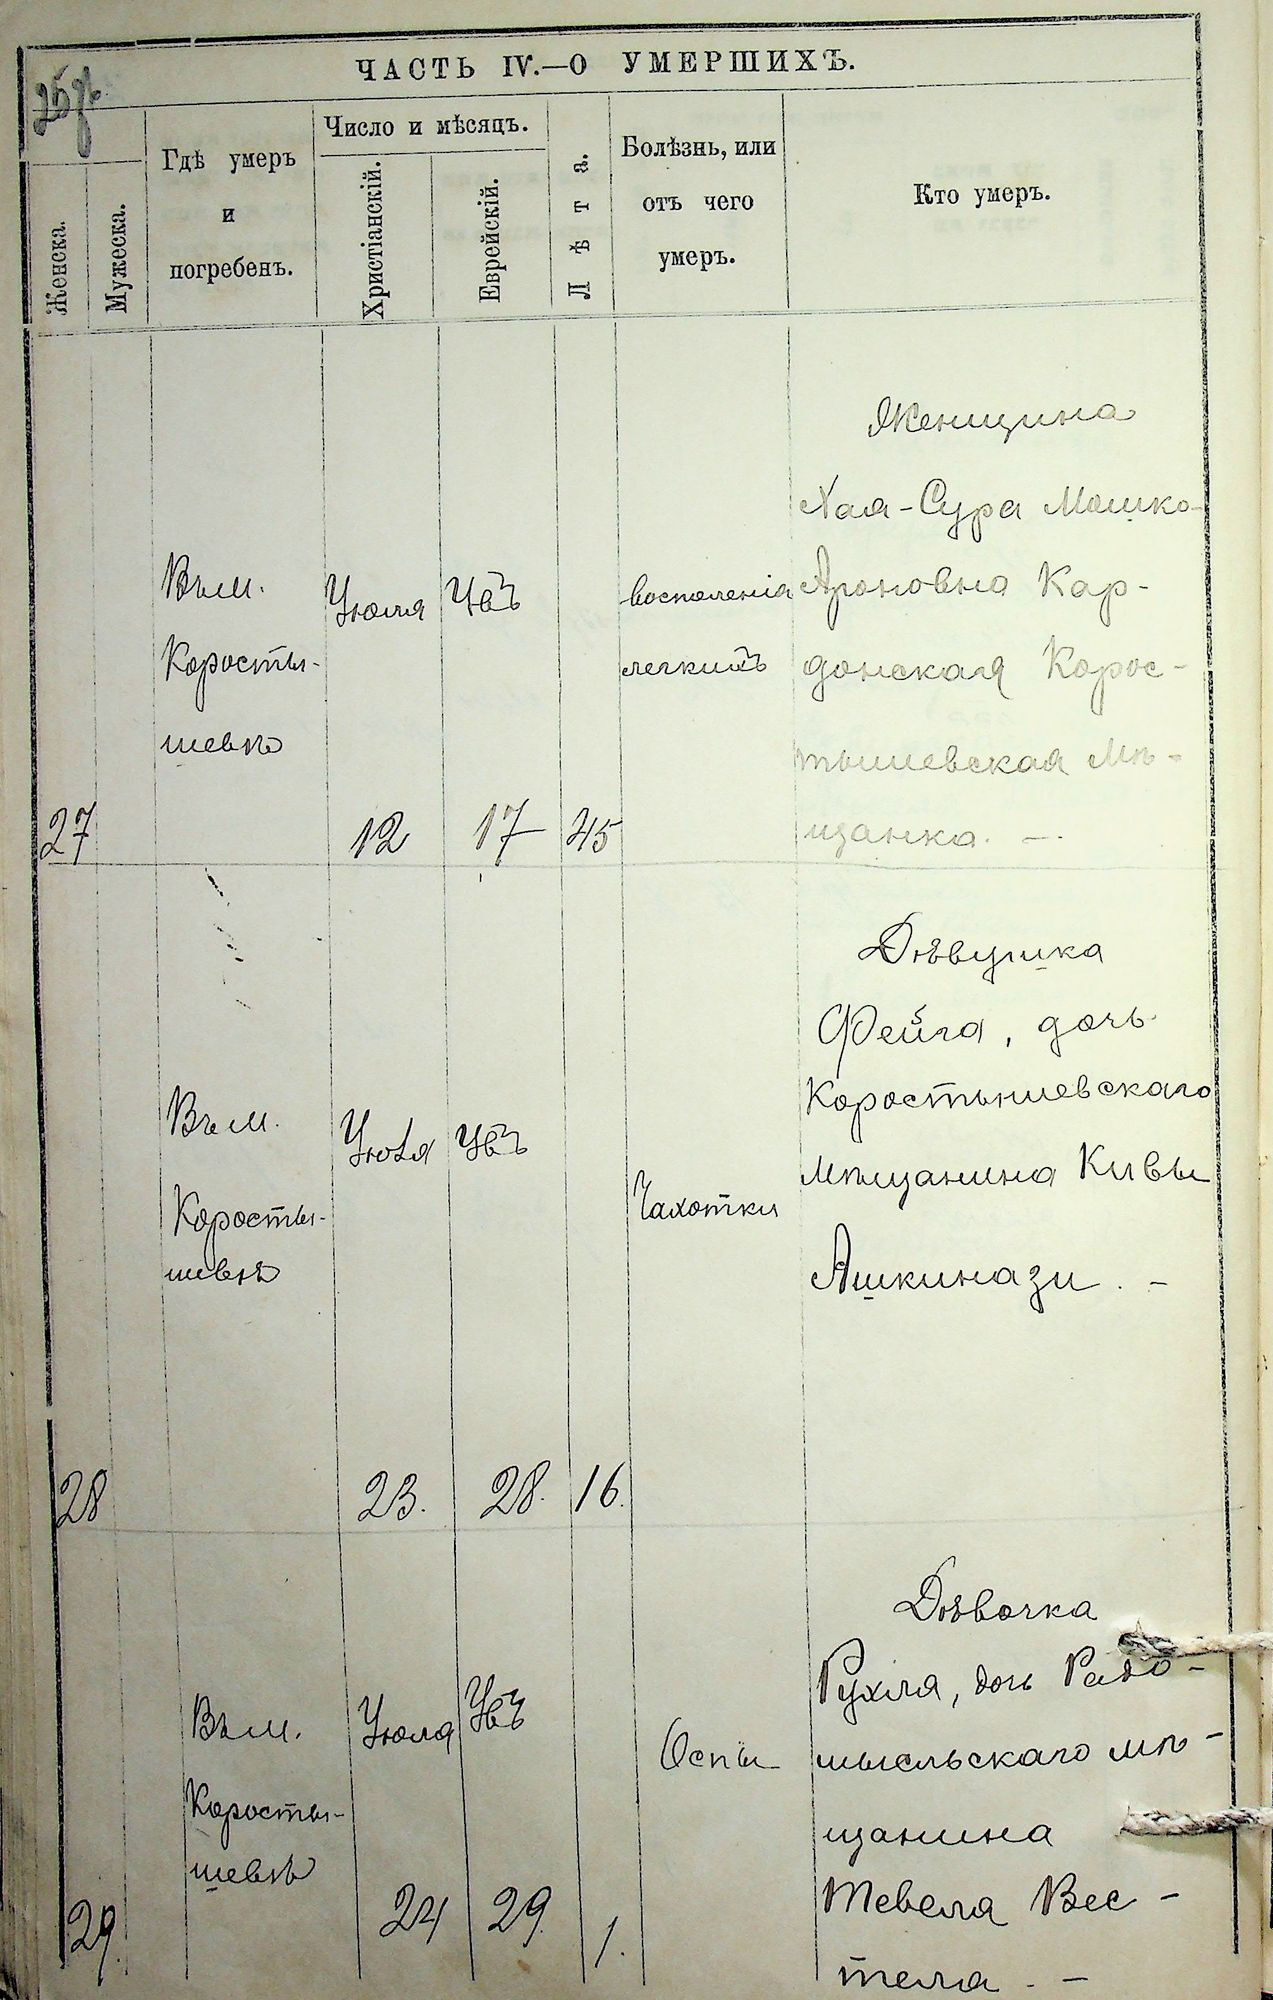 ЧАСТЬ IV.—О УМЕРШИХЪ.
Женска.
Мужеска.
Гдѣ умеръ
и
погребенъ.
Число и мѣсяцъ.
Христіанскій.
Еврейскій.
Лѣта.
Болѣзнь, или
отъ чего
умеръ.
Кто умеръ.
27
Въ м.
Коросты-
шевѣ
Іюля
12
17
45
воспаленія
легкихъ
Женщина
Хая-Сура Мошко-
Ароновна Кар-
донская Корос-
тышевская мѣ-
щанка. —
28
Въ м.
Коросты-
шевѣ
Іюля
23.
28.
16.
Чахотки
Дѣвушка
Фейга, дочь
Коростышевскаго
мѣщанина Кивы
Ашкинази. —
29.
Въ м.
Коросты-
шевѣ
Іюля
24
29.
1.
Оспы
Дѣвочка
Рухля, дочь Радо-
мысльскаго мѣ-
щанина
Тевеля Вес-
теля. —